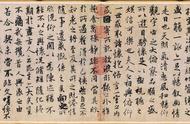 盛一觴一詠亦足以暢叙幽情
是日也天朗氣清惠風和暢仰
觀宇宙之大俯察品類之盛
所以遊目騁懷足以極視聽之
娛信可樂也夫人之相與俯仰
一世或取諸懷抱悟言一室之內
或因寄所託放浪形骸之外雖
趣舍萬殊靜躁不同當其欣
於所遇蹔得於己快然自足不
知老之將至及其所之既惓情
隨事遷感慨係之矣向之所欣
俛仰之閒以為陳迹猶不
能不以之興懷況脩短隨化終
期於盡古人云死生亦大矣豈
不痛哉每攬昔人興感之由
若合一契未嘗不臨文嗟悼不